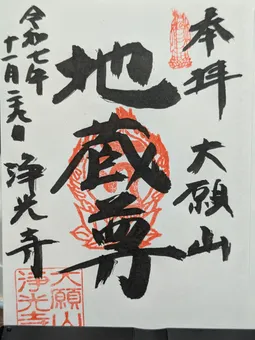 奉拝 大願山
地蔵尊
令和七年
十一月二九日
浄光寺
大願山
浄光寺